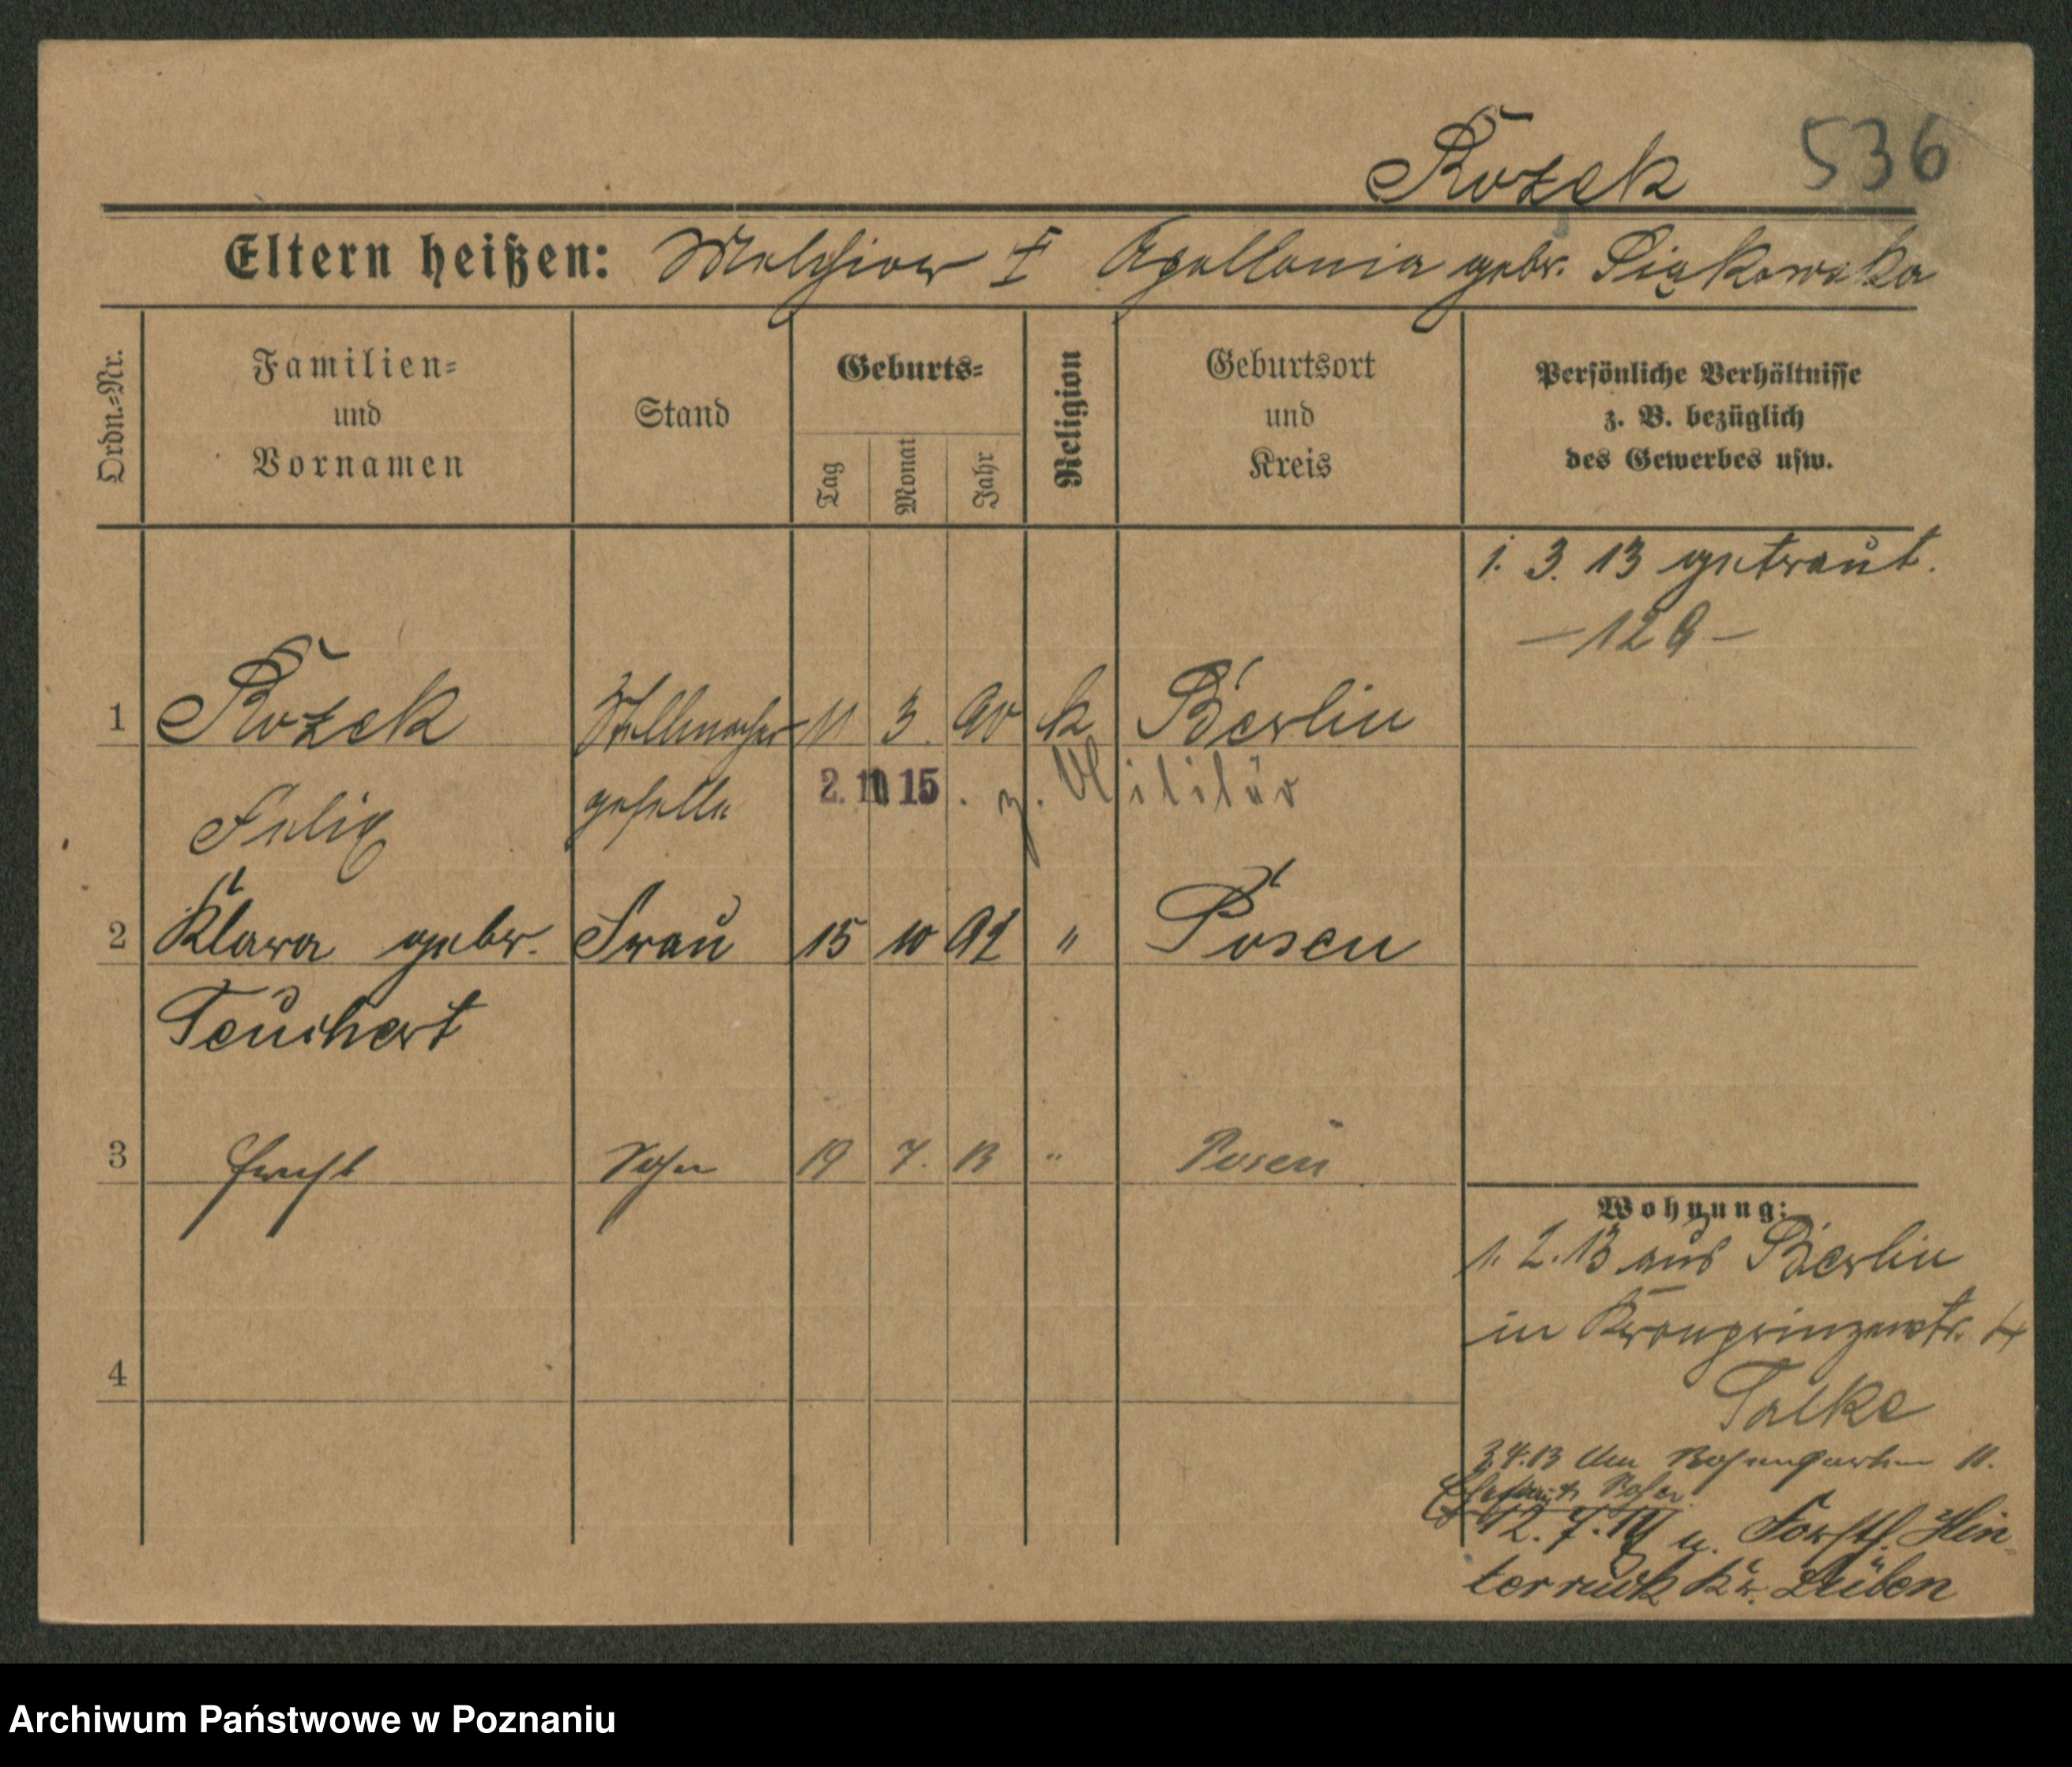 Rożek 536
Eltern heißen: Melchior † Apollonia gebr. Piąkowska
Ordn.=Nr.
Familien=
und
Vornamen
Stand
Geburts=
Tag
Monat
Jahr
Religion
Geburtsort
und
Kreis
Persönliche Verhältnisse
z. B. bezüglich
des Gewerbes usw.
1. 3. 13 getraut.
1 Rożek Stellmacher 11 3. 90 k. Berlin
Felix geselle 2. 11 15. z. Militär
2 Klara gebr. Frau 15 10 92 " Posen
Teuchert
3 Sohn 19 7. 13 " Posen
Wohnung:
1. 2. 13 aus Berlin
in Kronprinzenstr. 4
Talke
3. 4. 13 Am Rosengarten 11.
12. 7. 14 n. Forsth. Hin-
terruick Kr. Lüben
4
Archiwum Państwowe w Poznaniu